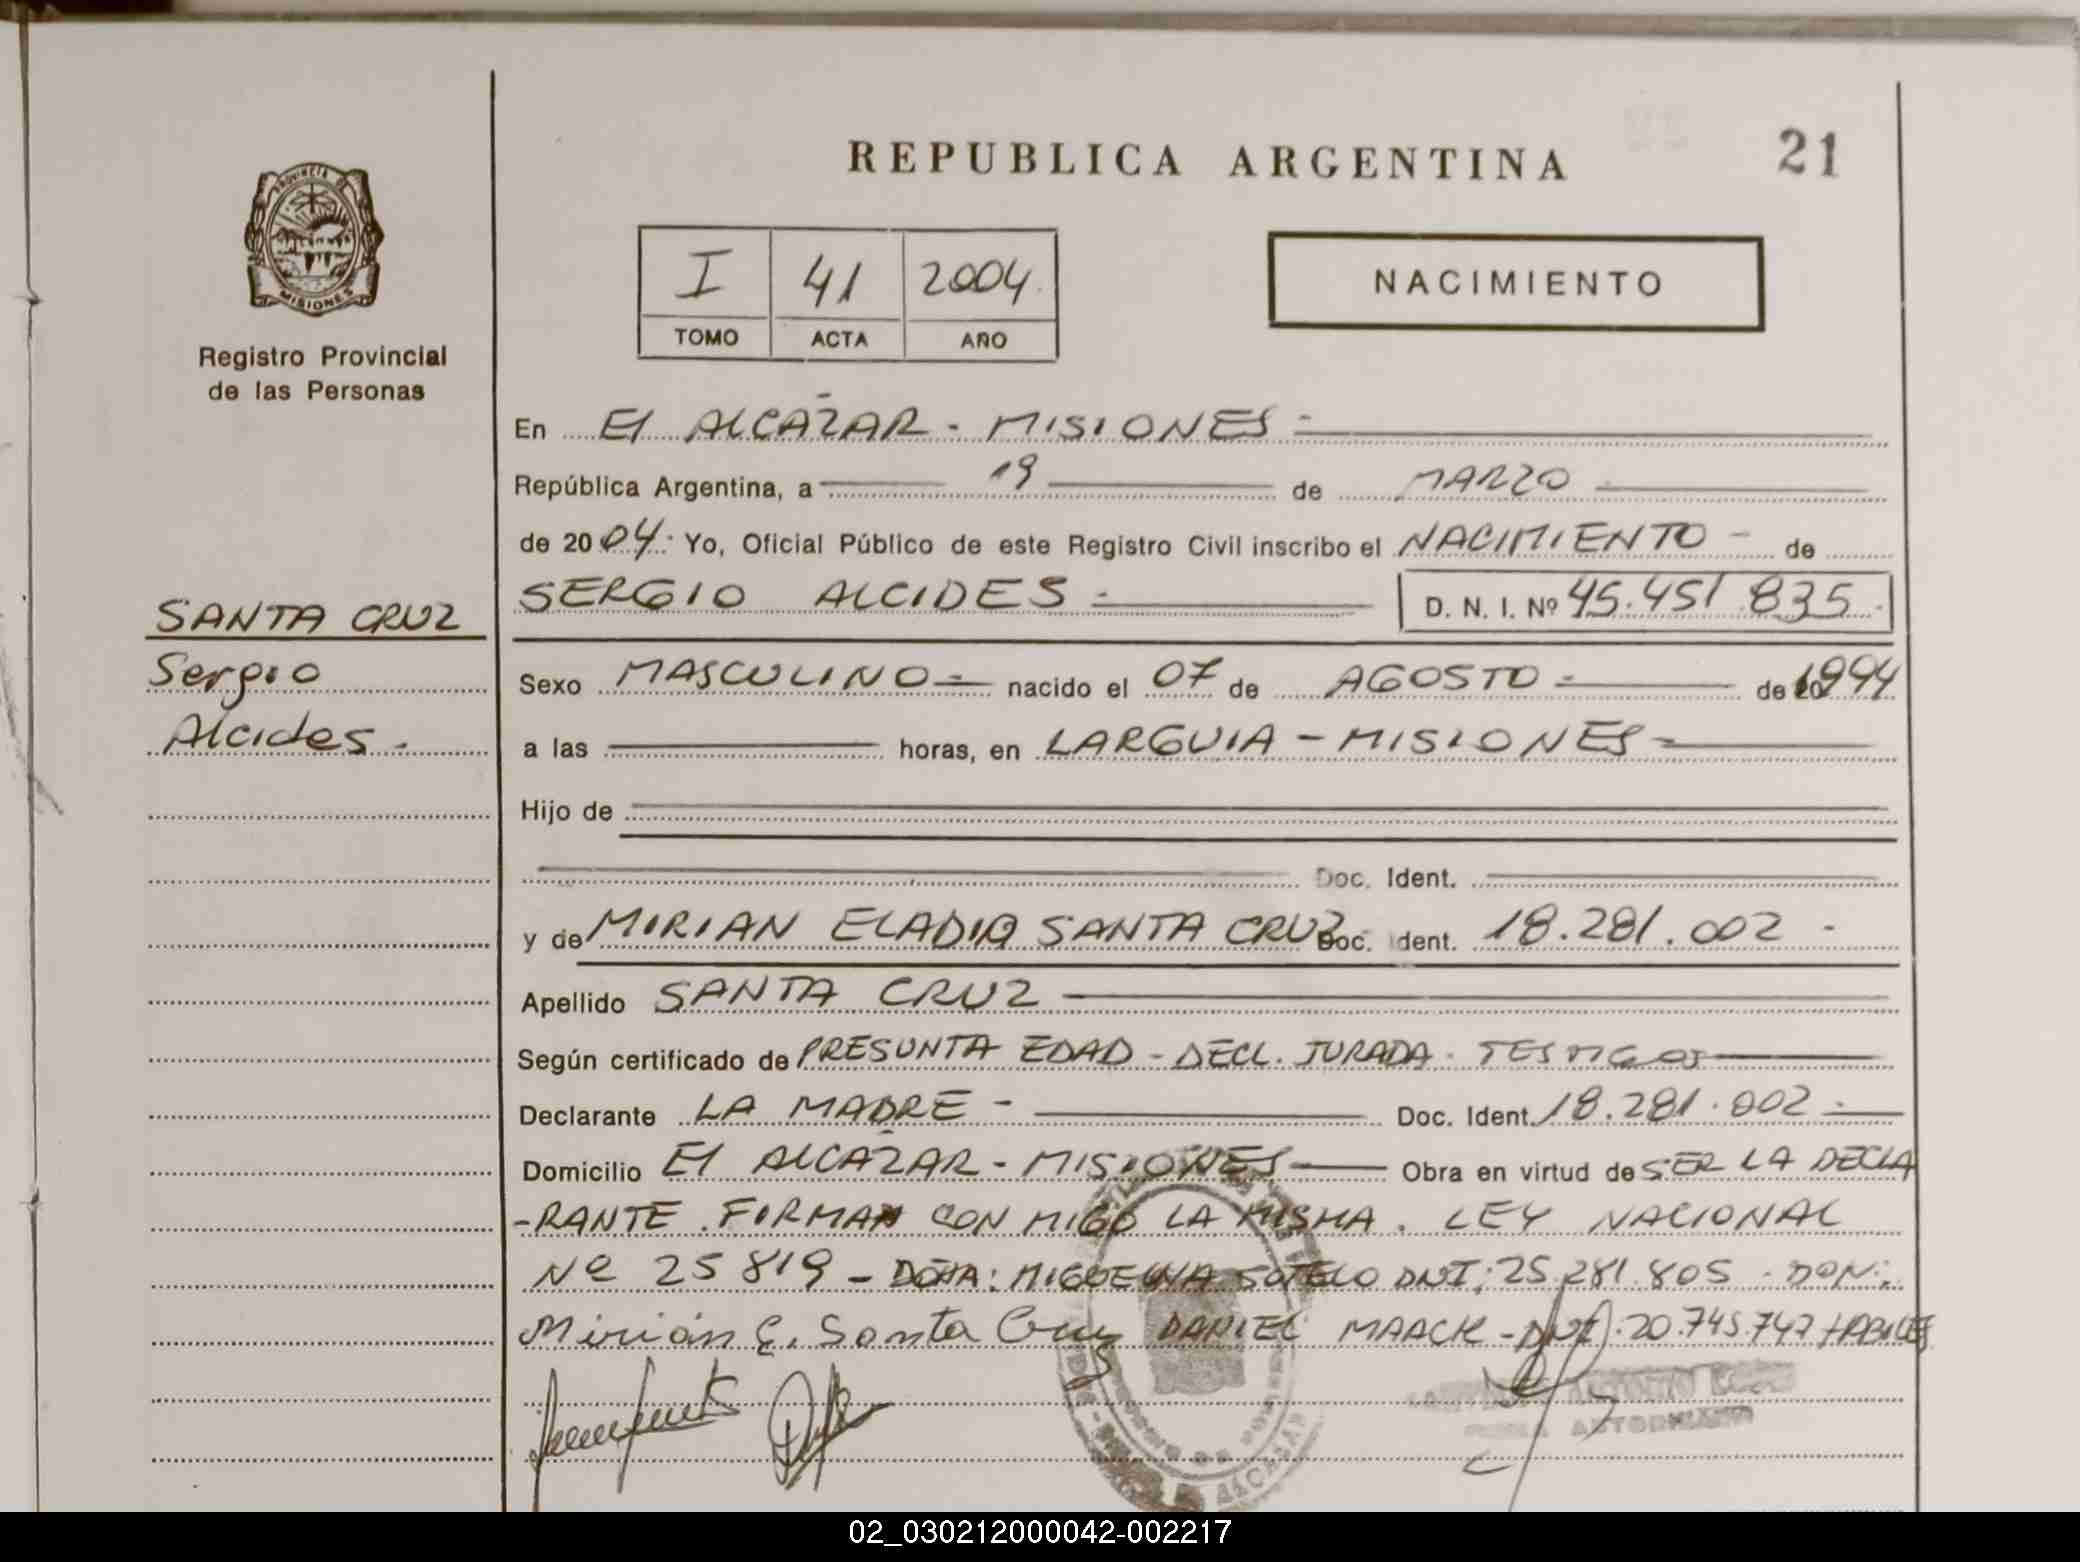 REPUBLICA ARGENTINA
21
PROVINCIA DE
MISIONES
Registro Provincial
de las Personas
I 41 2004
TOMO ACTA AÑO
NACIMIENTO
En El ALCAZAR - MISIONES -
República Argentina, a 19 de MARZO
de 2004 Yo, Oficial Público de este Registro Civil inscribo el NACIMIENTO - de
SERGIO ALCIDES - D. N. I. Nº 45.451.835.
SANTA CRUZ
Sergio
Alcides.
Sexo MASCULINO nacido el 07 de AGOSTO de 1994
a las horas, en LARGUIA - MISIONES -
Hijo de
Doc. Ident.
y de MIRIAN ELADIA SANTA CRUZ Doc. Ident. 18.281.002 -
Apellido SANTA CRUZ
Según certificado de PRESUNTA EDAD - DECL. JURADA. TESTIGOS
Declarante LA MADRE - Doc. Ident. 18.281.002 -
Domicilio El ALCAZAR - MISIONES Obra en virtud de SER LA DECLA
-RANTE. FIRMAN CON MIGO LA MISMA. LEY NACIONAL
Nº 25819 - DOÑA: MIGUELINA SOTELO DNI: 25.281.805 - DON:
Mirián E. Santa Cruz DANIEL MAACK - DNI. 20.745.747 HABILES
ALCAZAR
02_030212000042-002217